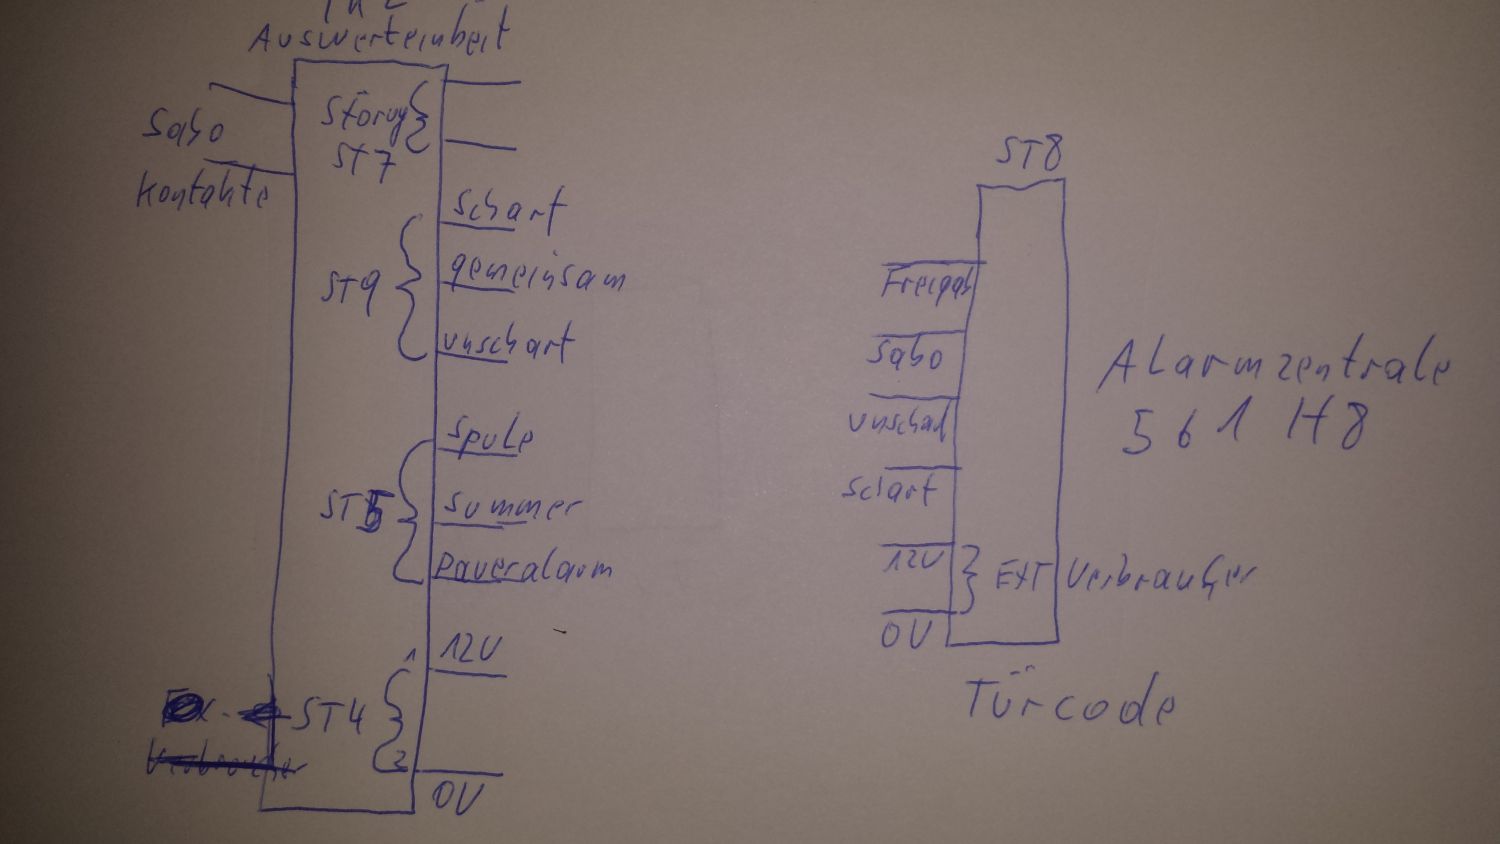 Auswerteinheit
Sabo
Kontakte
Störug
ST7
scharf
gemeinsam
ST9
unscharf
Spule
ST5
Summer
Daueralarm
1 12V
ST4
2
0V
ST8
Freigab
Sabo
unschaf
scharf
12V
EXT Verbraucher
0V
Alarmzentrale
561 H8
Türcode